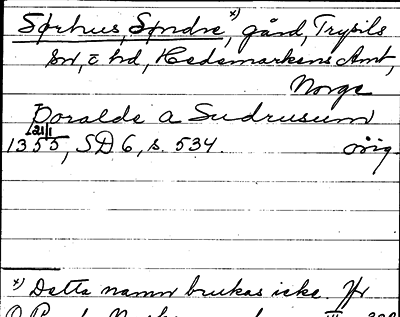 Sørhus, Søndre, *) gård, Trysils
sn, & hd, Hedemarkens Amt,
Norge
Þoralde a Sudrusum
21/1
1355, SD 6, s. 534. orig.
*) Detta namn brukas icke. Jfr